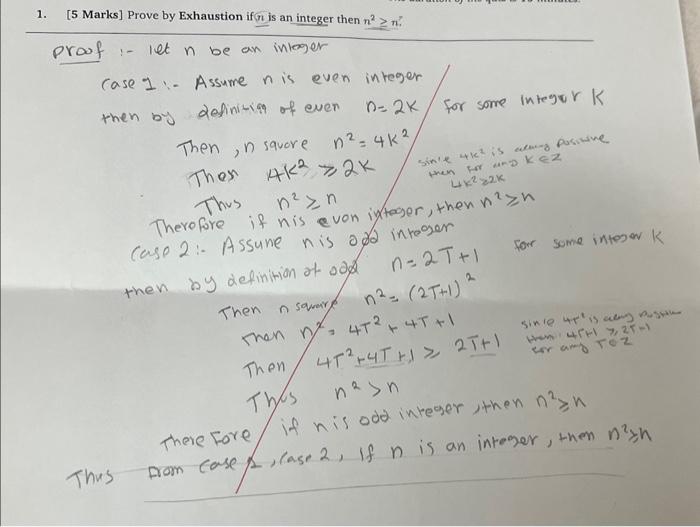 1. [5 Marks] Prove by Exhaustion if n is an integer then n² ≥ n.
Proof :- let n be an integer
Case 1 :- Assume n is even integer
then by definition of even n = 2K for some integer K
Then, n square n² = 4K²
Then 4K² ≥ 2K
since 4K² is always Positive
then for any K ∈ Z
4K² ≥ 2K
Thus n² ≥ n
Therefore if n is even integer, then n² ≥ n
Case 2 :- Assume n is odd integer
then by definition of odd n = 2T+1 for some integer K
Then n square n² = (2T+1)²
Then n² = 4T² + 4T + 1
Then 4T²+4T+1 ≥ 2T+1
since 4T² is always
for any T ∈ Z
Thus n² > n
Therefore if n is odd integer, then n² ≥ n
Thus From Case 1, Case 2, If n is an integer, then n² ≥ n